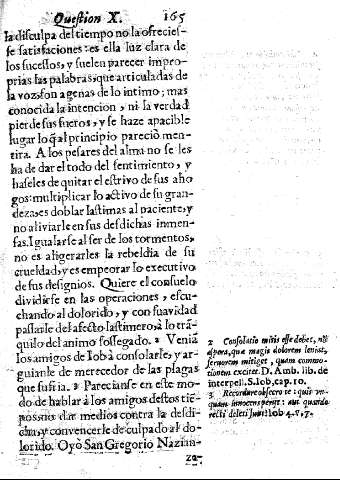 Question X. 165
la disculpa del tiempo no la ofrecies-
se satisfaciones: es ella luz clara de
los sucessos, y suelen parecer impro-
prias las palabras, que articuladas de
la voz, son agenas de lo intimo; mas
conocida la intencion, ni la verdad
pierde sus fueros, y se haze apacible
lugar lo q̃ al principio pareciò men-
tira. A los pesares del alma no se les
ha de dar el todo del sentimiento, y
haseles de quitar el estrivo de sus aho
gos: multiplicar lo activo de su gran-
deza, es doblar lastimas al paciente, y
no aliviarle en sus desdichas inmen-
sas. Igualarse al ser de los tormentos,
no es aligerarles la rebeldia de su
crueldad, y es empeorar lo executivo
de sus designios. Quiere el consuelo
dividirse en las operaciones, escu-
chando al dolorido, y con suavidad
passarle del afecto lastimero, à lo trã-
quilo del animo sossegado. 2 Veniã
los amigos de Iob à consolarle, y ar-
guianle de merecedor de las plagas
que sufria. 3 Parecianse en este mo-
do de hablar à los amigos destos tiẽ-
pos: no dar medios contra la desdi-
cha, y convencerle de culpado al do-
lorido. Oyò San Gregorio Nazian-
ze-
2 Consolatio mitis esse debet, nõ
aspera, quæ magis dolorem leniat,
fervorem mitiget, quam commo-
tionem exciter. D. Amb. lib. de
interpell. S. Iob, cap. 10.
3 Recordare obsecro te: quis un-
quam innocens perijt: aut quando
recti deleti sunt? Iob 4. v. 7.